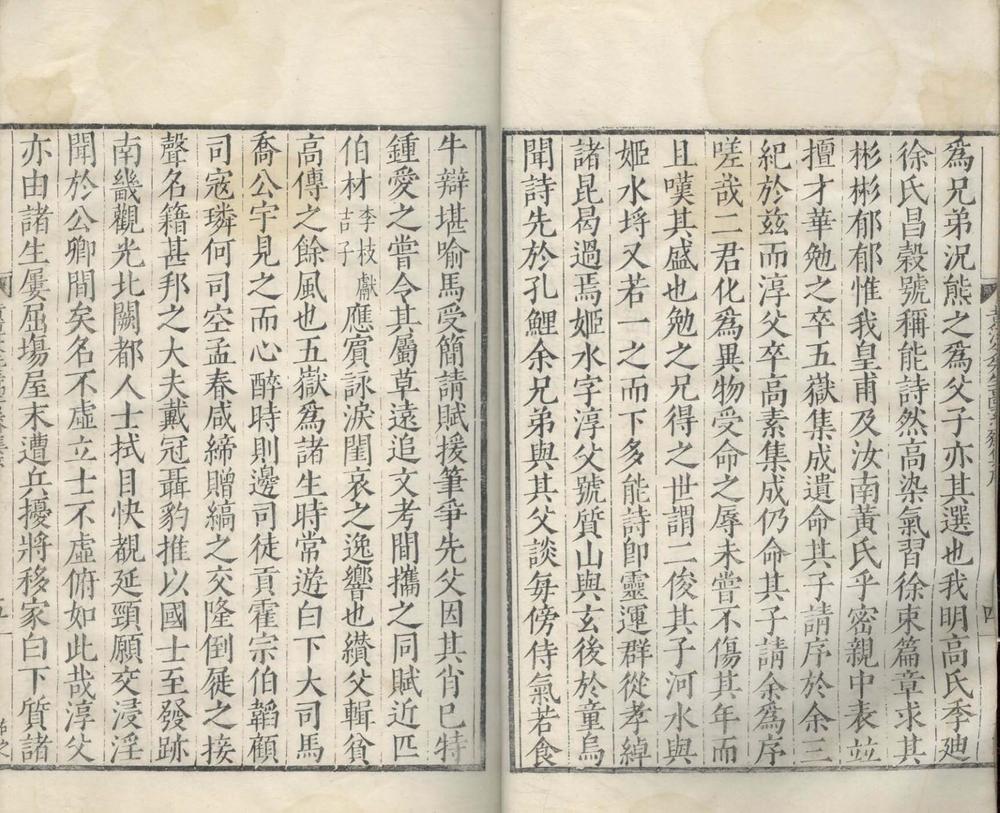 為兄弟況熊之為父子亦其選也我明高氏季廸
徐氏昌穀號稱能詩然高染氣習徐束篇章求其
彬彬郁郁惟我皇甫及汝南黃氏乎密親中表竝
擅才華勉之卒五嶽集成遺命其子請序於余三
紀於茲而淳父卒高素集成仍命其子請余為序
嗟哉二君化為異物受命之辱未嘗不傷其年而
且嘆其盛也勉之兄得之世謂二俊其子河水與
姬水埒又若一之而下多能詩即靈運群從孝綽
諸昆曷過焉姬水字淳父號質山與玄後於童烏
聞詩先於孔鯉余兄弟與其父談每傍侍氣若食
四
牛辯堪喻馬受簡請賦援筆爭先父因其肖已特
鍾愛之嘗令其屬草遠追文考間攜之同賦近匹
伯材李枝獻吉子應賓詠淚閨哀之逸響也纘父輯貧
高傳之餘風也五嶽為諸生時常遊白下大司馬
喬公宇見之而心醉時則邊司徒貢霍宗伯韜顧
司寇璘何司空孟春咸締贈縞之交隆倒屣之接
聲名籍甚邦之大夫戴冠聶豹推以國士至發跡
南畿觀光北闕都人士拭目快覩延頸願交浸淫
聞於公卿間矣名不虛立士不虛俯如此哉淳父
亦由諸生屢屈塲屋末遭兵擾將移家白下質諸